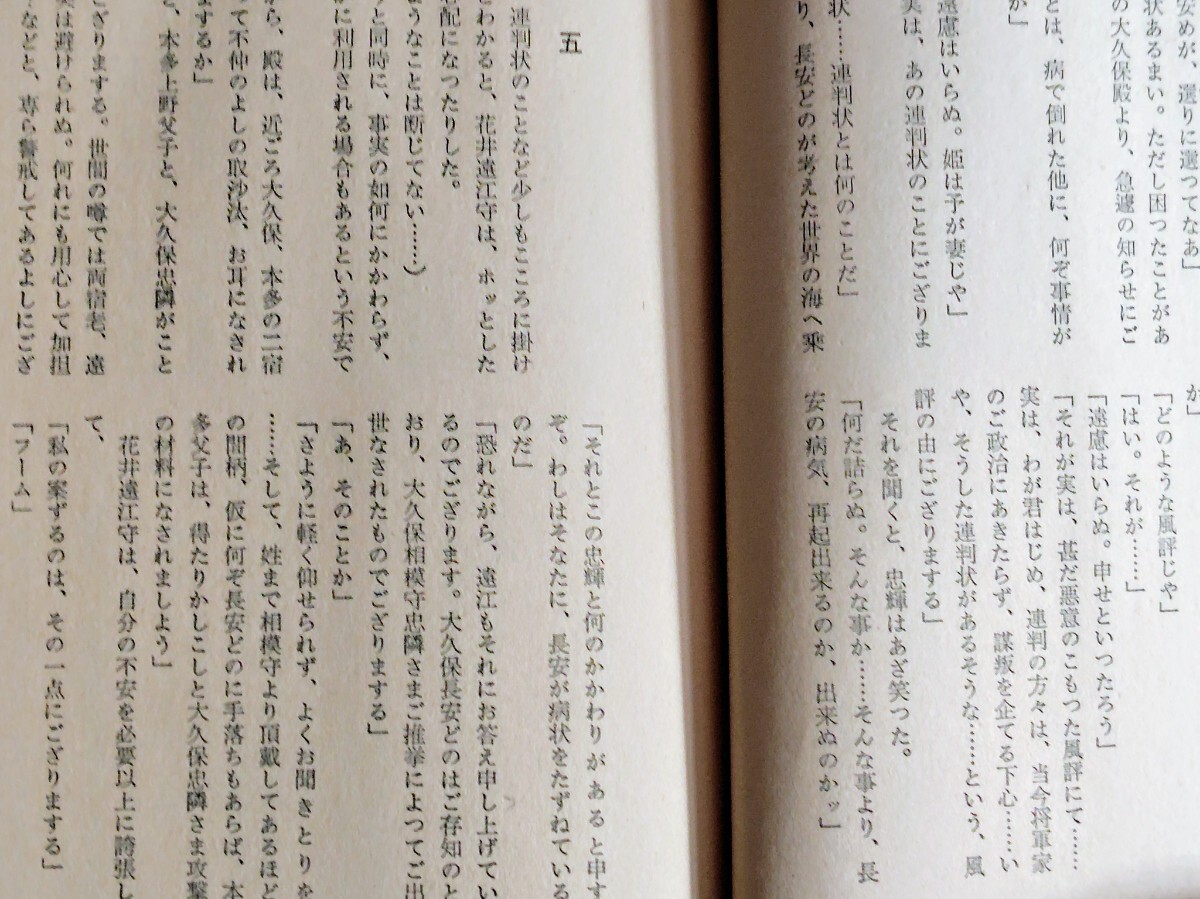 安めが、選りに選つてなあ」
状あるまい。ただし困つたことがあ
の大久保殿より、急遽の知らせにご
とは、病で倒れた他に、何ぞ事情が
か」
遠慮はいらぬ。姫は予が妻じや」
実は、あの連判状のことにござりま
状……連判状とは何のことだ」
り、長安どのが考えた世界の海へ乗
か」
「どのような風評じや」
「はい。それが……」
「遠慮はいらぬ。申せといつたろう」
「それが実は、甚だ悪意のこもつた風評にて……
実は、わが君はじめ、連判の方々は、当今将軍家
のご政治にあきたらず、謀叛を企てる下心……い
や、そうした連判状があるそうな……という、風
評の由にござりまする」
それを聞くと、忠輝はあざ笑つた。
「何だ詰らぬ。そんな事か……そんな事より、長
安の病気、再起出来るのか、出来ぬのかッ」
五
連判状のことなど少しもこころに掛け
とわかると、花井遠江守は、ホッとした
配になつたりした。
ようなことは断じてない……)
と同時に、事実の如何にかかわらず、
に利用される場合もあるという不安で
から、殿は、近ごろ大久保、本多の二宿
つて不仲のよしの取沙汰、お耳になされ
まするか」
と、本多上野父子と、大久保忠隣がこと
ござりまする。世間の噂では両宿老、遠
実は避けられぬ。何れにも用心して加担
などと、専ら警戒してあるよしにござ
「それとこの忠輝と何のかかわりがあると申す
ぞ。わしはそなたに、長安が病状をたずねている
のだ」
「恐れながら、遠江もそれにお答え申し上げてい
るのでござります。大久保長安どのはご存知のと
おり、大久保相模守忠隣さまご推挙によつてご出
世なされたものでござりまする」
「あ、そのことか」
「さように軽く仰せられず、よくお聞きとりを
……そして、姓まで相模守より頂戴してあるほど
の間柄、仮に何ぞ長安どのに手落ちもあらば、本
多父子は、得たりかしこしと大久保忠隣さま攻撃
の材料になされましよう」
花井遠江守は、自分の不安を必要以上に誇張し
て、
「私の案ずるのは、その一点にござりまする」
「フーム」